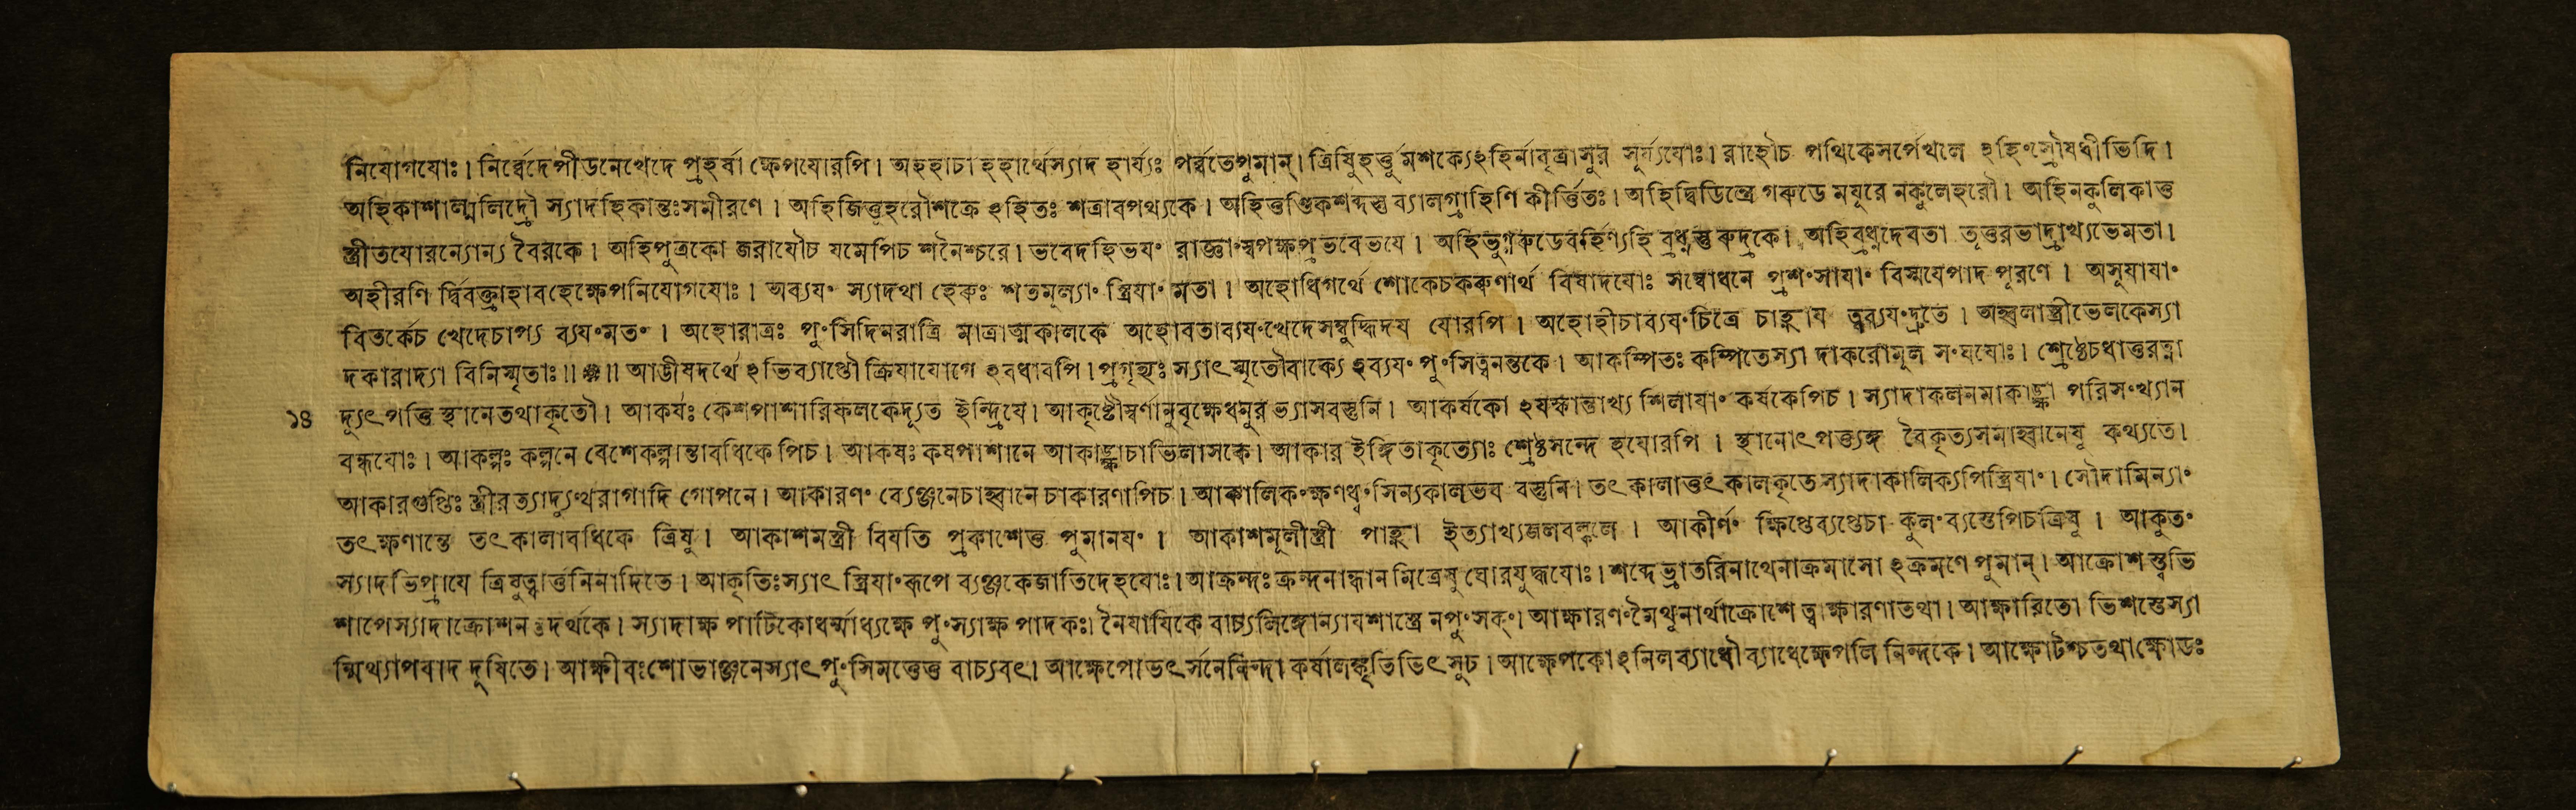 নিযোগযোঃ। নির্ব্বেদেপীডনেখেদে প্রহর্ষা ক্ষেপযোরপি। অহহাচাহহার্থেস্যাদ হার্য্যঃ পর্ব্বতেপুমান্। ত্রিষুহর্ত্তুমশক্যেঽহির্নাবৃত্রাসুর সূর্য্যযোঃ। রাহৌচ পথিকেসর্পেখলে ঽহিংস্রৌষধীভিদি।
অহিকাশাল্মলিদ্রৌ স্যাদহিকান্তঃসমীরণে। অহিজিত্তুহরৌশক্রে ঽহিতঃ শত্রাবপথ্যকে। অহিতুণ্ডিকশব্দস্তু ব্যালগ্রাহিণি কীর্ত্তিতঃ। অহিদ্বিডিন্দ্রে গরুডে মযূরে নকুলেহরৌ। অহিনকুলিকাতু
স্ত্রীতযোরন্যোন্য বৈরকে। অহিপুত্রকো জরাযৌচ যমেপিচ শনৈশ্চরে। ভবেদহিভযং রাজ্ঞাংস্বপক্ষপ্রভবেভযে। অহিভুগ্গরুডেবর্হিণ্যহি ব্রধ্নস্তু রুদ্রকে। অহিব্রধ্নদেবতা তূত্তরভাদ্রাখ্যভেমতা।
অহীরণি র্দ্বিবক্ত্রাহাবহেক্ষেপনিযোগযোঃ। অব্যযং স্যাদথা হেরুঃ শতমূল্যাং স্ত্রিযাং মতা। অহোধিগর্থে শোকেচকরুণার্থ বিষাদযোঃ সম্বোধনে প্রশংসাযাং বিস্মযেপাদ পূরণে। অসূযাযাং
বিতর্কেচ খেদেচাপ্য ব্যযংমতং। অহোরাত্রঃ পুংসিদিনরাত্রি মাত্রাত্মকালকে অহোবতাব্যযংখেদেসম্বুদ্ধিদয যোরপি। অহোহীচাব্যযংচিত্রে চাহ্নায ত্বব্যযংদ্রুতে। অহ্বলাস্ত্রীভেলকেস্যা
দকারাদ্যা বিনিস্মৃতাঃ॥ ॥ আঙীষদর্থে ঽভিব্যাপ্তৌ ক্রিযাযোগে ঽবধাবপি। প্রগৃহ্যঃ স্যাৎ স্মৃতৌবাক্যে ঽব্যযং পুংসিত্বনন্তকে। আকম্পিতঃ কম্পিতেস্যা দাকরোমূল সংঘযোঃ। শ্রেষ্ঠেচধাত্তরত্না
১৪ দ্যুৎপত্তি স্থানেতথাকৃতৌ। আকর্ষঃ কেশপাশারিফলকেদ্যূত ইন্দ্রিযে। আকৃষ্টৌস্বর্ণানুবৃক্ষেধনুর ভ্যাসবস্তুনি। আকর্ষকো ঽযস্কান্তাখ্য শিলাযাং কর্ষকেপিচ। স্যাদাকলনমাকাঙ্ক্ষা পরিসংখ্যান
বন্ধযোঃ। আকল্পঃ কল্পনে বেশেকল্পান্তাবধিকেপিচ। আকষঃ কষপাশানে আকাঙ্ক্ষাচাভিলাসকে। আকার ইঙ্গিতাকৃত্যোঃ শ্রেষ্ঠসন্দে হযোরপি। স্থানোৎপত্ত্যঙ্গ বৈকৃত্যসমাহ্বানেষু কথ্যতে।
আকারগুপ্তিঃ স্ত্রীরত্যাদ্যুত্থরাগাদি গোপনে। আকারণং ব্যেঞ্জনেচাহ্বানে চাকারণাপিচ। আকালিকংক্ষণধ্বংসিন্যকালভব বস্তুনি। তৎ কালাত্তৎ কালকৃতে স্যাদাকালিক্যপিস্ত্রিযাং। সৌদামিন্যাং
তৎক্ষণান্তে তৎকালাবধিকে ত্রিষু। আকাশমস্ত্রী বিযতি প্রকাশেতু পুমানযং। আকাশমূলীস্ত্রী পাহ্না ইত্যাখ্যজলবল্কলে। আকীর্ণং ক্ষিপ্তেব্যপ্তেচা কুলংব্যস্তেপিচত্রিষু। আকুতং
স্যাদভিপ্রাযে ত্রিষুত্বার্ত্তনিনাদিতে। আকৃতিঃস্যাৎ স্ত্রিযাংরূপে ব্যঞ্জকেজাতিদেহযোঃ। আক্রন্দঃ ক্রন্দনাহ্বান মিত্রেষু ঘোরযুদ্ধযোঃ। শব্দেভ্রাতরিনাথেনাক্রমাসো ঽক্রমণে পুমান্। আক্রোশ স্ত্বভি
শাপেস্যাদাক্রোশন তদর্থকে। স্যাদাক্ষ পাটিকোধর্ম্মাধ্যক্ষে পুংস্যাক্ষ পাদকঃ। নৈযাযিকে বাচ্যলিঙ্গোন্যাযশাস্ত্রে নপুংসকং। আক্ষারণংমৈথুনার্থাক্রোশে ত্বাক্ষারণাতথা। আক্ষারিতো ভিশস্তেস্যা
ন্মিথ্যাপবাদ দূষিতে। আক্ষীবঃশোভাঞ্জনেস্যাৎ পুংসিমত্তেতু বাচ্যবৎ। আক্ষেপোভৎর্সনেনিন্দা কর্ষালঙ্কৃতিভিৎ সুচ। আক্ষেপকোঽনিলব্যাধৌ ব্যাধেক্ষেপলি নিন্দকে। আক্ষোটশ্চতথাক্ষোডঃ